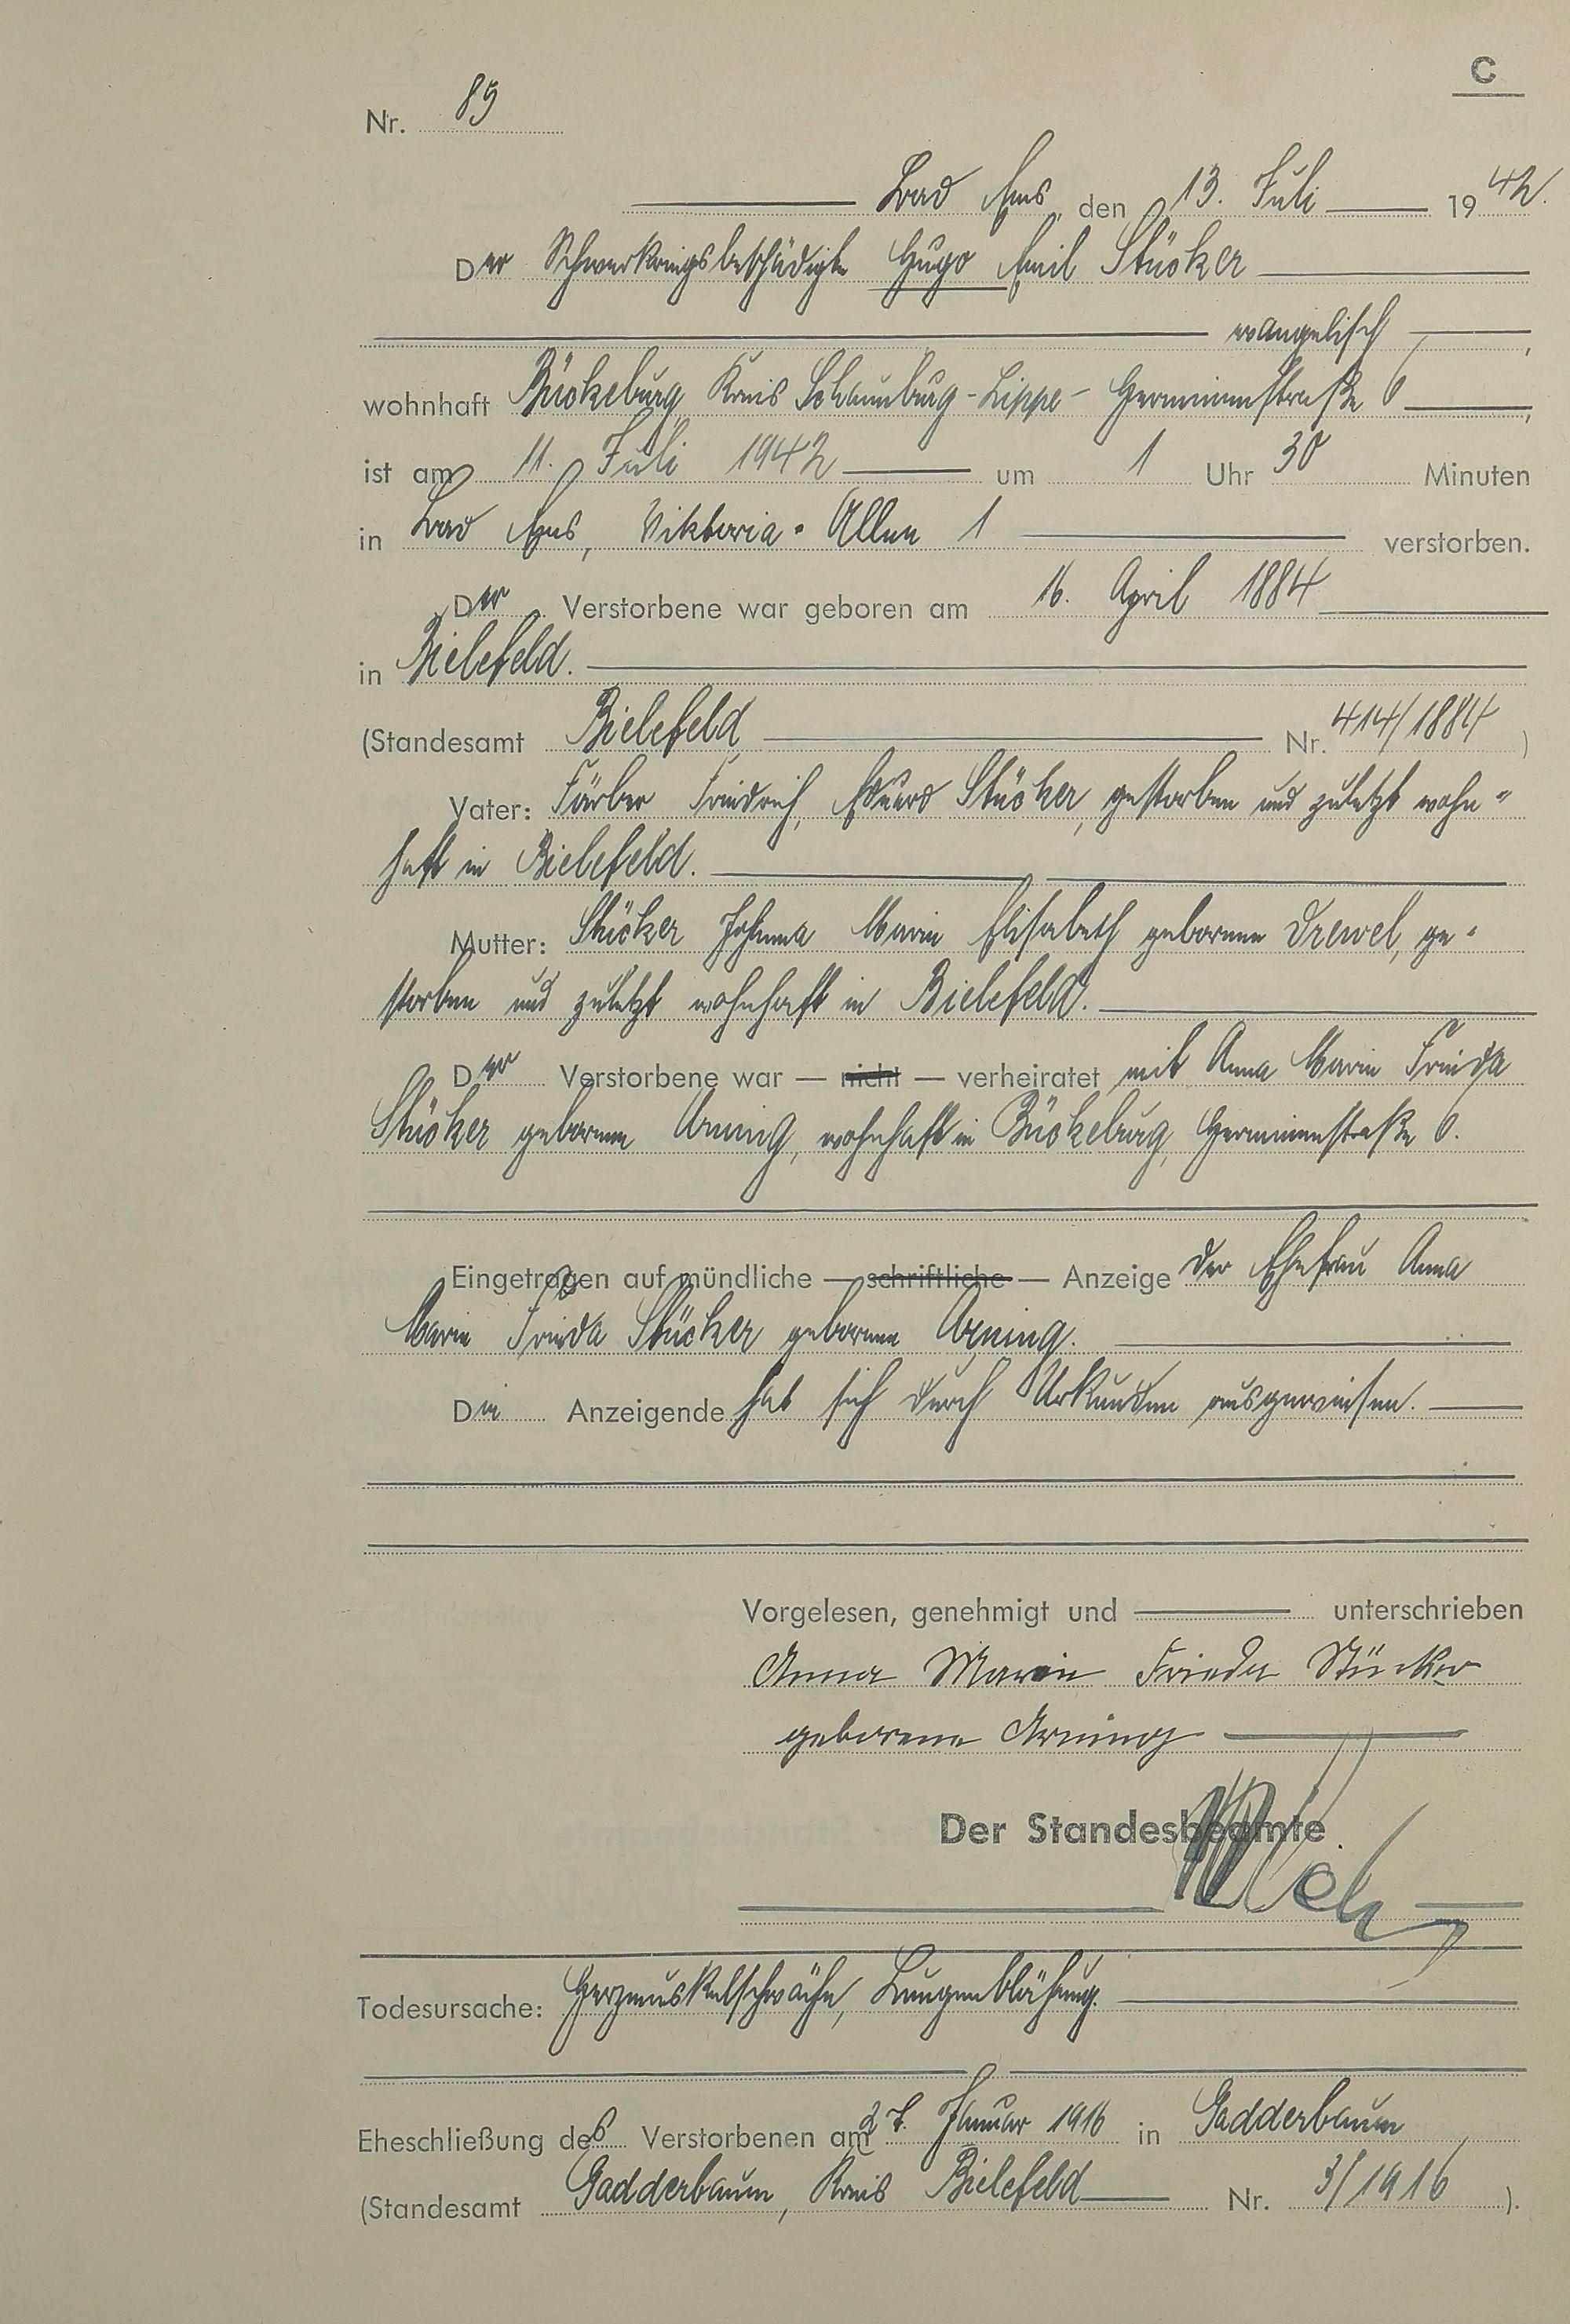 C
Nr. 89
Bad Ems, den 13. Juli 1942.
Der Schwerkriegsbeschädigte Hugo Emil Stücker
evangelisch,
wohnhaft Bückeburg Kreis Schaumburg-Lippe - Herminenstraße 6,
ist am 11. Juli 1942 um 1 Uhr 30 Minuten
in Bad Ems, Viktoria-Allee 1 verstorben.
Der Verstorbene war geboren am 16. April 1884
in Bielefeld.
(Standesamt Bielefeld Nr. 414/1884)
Vater: Färber Friedrich Eduard Stücker, gestorben und zuletzt wohn-
haft in Bielefeld.
Mutter: Stücker Johanna Marie Elisabeth geborene Drewel, ge-
storben und zuletzt wohnhaft in Bielefeld.
Der Verstorbene war — nicht — verheiratet mit Anna Marie Frieda
Stücker geborene Arning, wohnhaft in Bückeburg, Herminenstraße 6.
Eingetragen auf mündliche — schriftliche — Anzeige der Ehefrau Anna
Marie Frieda Stücker geborene Arning.
Die Anzeigende hat sich durch Urkunden ausgewiesen.
Vorgelesen, genehmigt und unterschrieben
Anna Marie Frieda Stücker
geborene Arning
Der Standesbeamte
Todesursache: Herzmuskelschwäche, Lungenblähung.
Eheschließung des Verstorbenen am 27. Januar 1916 in Gadderbaum
(Standesamt Gadderbaum, Kreis Bielefeld Nr. 3/1916).